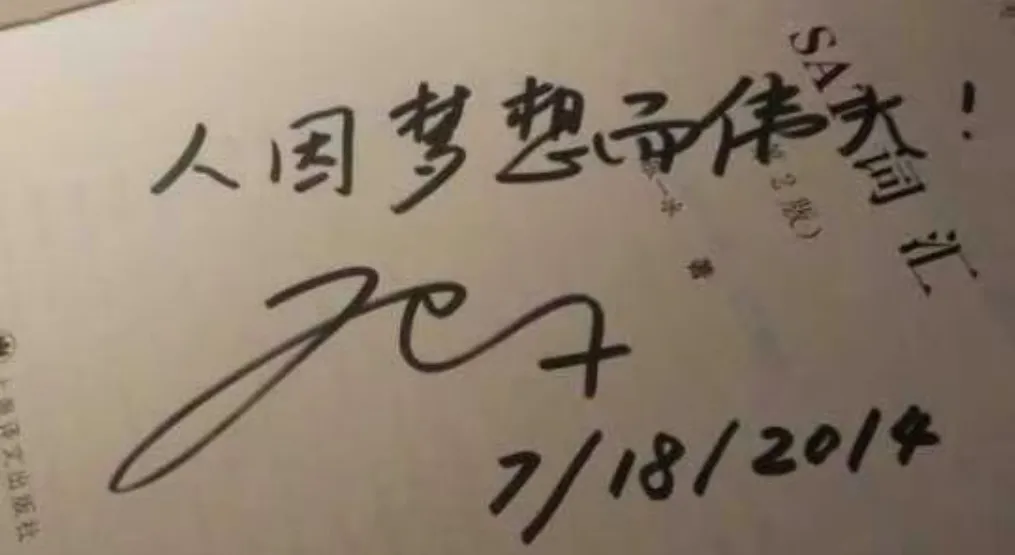 人因梦想而伟大！
7/18/2014
SAT词汇
第2版）
一冰 著
上海译文出版社